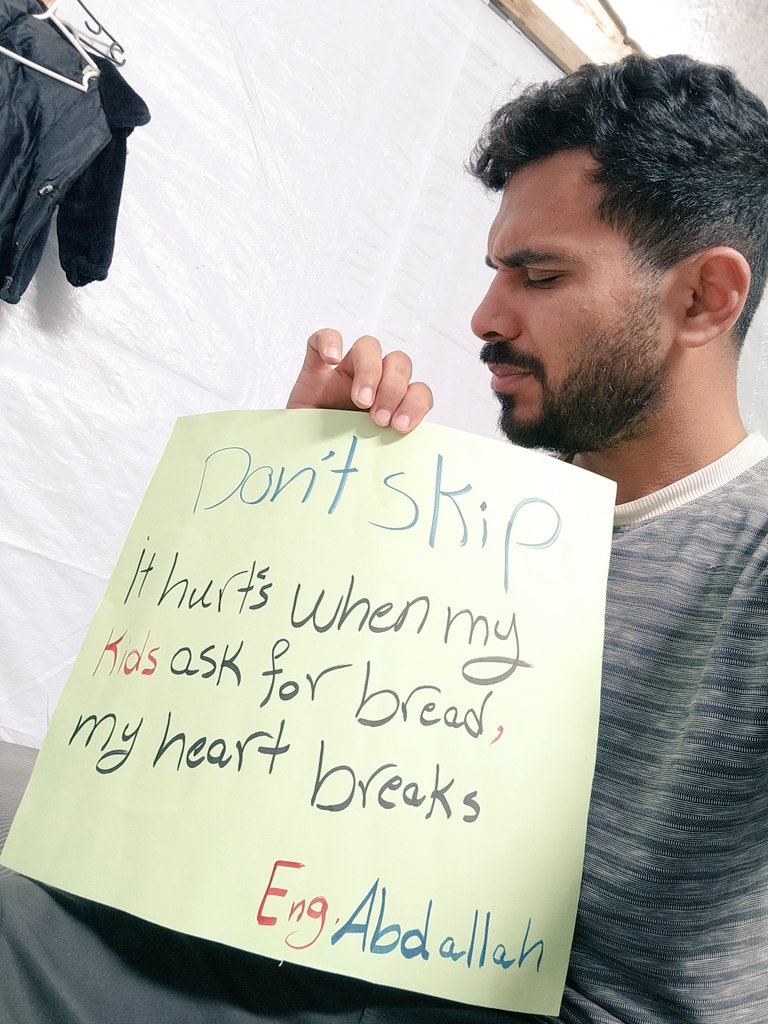 Don't skip
it hurt's when my
kids ask for bread,
my heart breaks
Eng. Abdallah